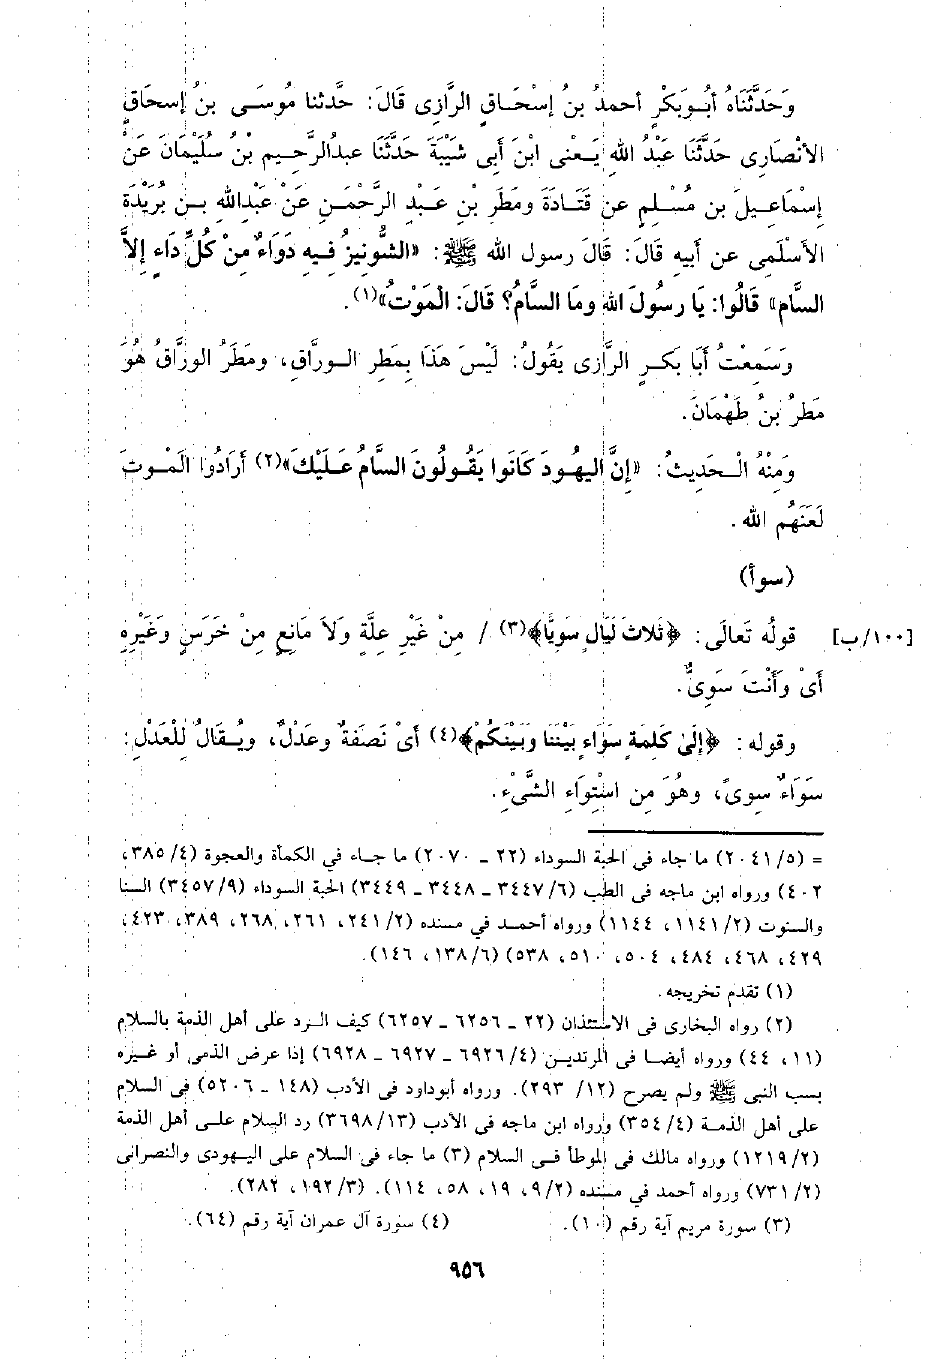 وَحَدَّثَنَاهُ أبُو بَكْرٍ أحمدُ بنُ إسْحَاقٍ الرَّازِى قَالَ: حَدَّثنا مُوسَى بنُ إسحَاقٍ
الأنْصَارِى حَدَّثَنَا عَبْدُ اللهِ يَعْنى ابْنَ أبى شَيْبَةَ حَدَّثَنَا عبدالرَّحِيم بن سُلَيْمَانَ عَنْ
إسْمَاعِيلَ بن مُسْلِمٍ عن قَتَادَةَ ومَطَرِ بْنِ عَبْدِ الرَّحْمَنِ عَنْ عَبْدِالله بن بُرَيْدَةَ
الأَسْلَمِى عن أبيهِ قَالَ: قَالَ رسول الله ﷺ: «الشُّونِيزُ فِيهِ دَوَاءٌ مِنْ كُلِّ دَاءٍ إلاَّ
السَّام» قَالُوا: يَا رسُولَ اللهِ ومَا السَّامُ؟ قَالَ: الْمَوْتُ»(١).
وَسَمِعْتُ أبَا بَكرٍ الرَّازِى يَقُولُ: لَيْسَ هَذَا بِمَطَرِ الورَّاقِ، ومَطَرُ الورَّاقُ هُوَ
مَطَرُ بنُ طَهْمَانَ.
وَمِنْهُ الْحَدِيثُ: «إنَّ اليهُودَ كَانُوا يَقُولُونَ السَّامُ عَلَيْكَ»(٢) أرَادُوا الْمْوتَ
لَعَنَهُم الله.
(سوأ)
[١٠٠/ب] قولُه تَعالَى: ﴿ثَلاثَ لَيَالٍ سَوِيًّا﴾(٣) / مِنْ غَيْرِ عِلَّةٍ وَلاَ مَانِعٍ مِنْ خَرَسٍ وَغَيْرِهِ
أىْ وَأَنْتَ سَوِىٌّ.
وقوله: ﴿إِلَىٰ كَلِمَةٍ سَوَاءٍ بَيْنَنَا وَبَيْنَكُمْ﴾(٤) أىْ نَصَفَةٌ وعَدْلٌ، ويُقَالُ لِلْعَدْلِ:
سَوَاءٌ سِوىً، وهُوَ مِن اسْتِوَاءِ الشَّىْءِ.
= (٢٠٤١/٥) ما جاء فى الحبة السوداء (٢٢ - ٢٠٧٠) ما جاء فى الكمأة والعجوة (٣٨٥/٤،
٤٠٢) ورواه ابن ماجه فى الطب (٣٤٤٧/٦ - ٣٤٤٨ - ٣٤٤٩) الحبة السوداء (٣٤٥٧/٩) السنا
والسنوت (١١٤١/٢، ١١٤٤) ورواه أحمد في مسنده (٢٤١/٢، ٢٦١، ٢٦٨، ٣٨٩، ٤٢٣،
٤٢٩، ٤٦٨، ٤٨٤، ٥٠٤، ٥١٠، ٥٣٨) (١٣٨/٦، ١٤٦).
(١) تقدم تخريجه.
(٢) رواه البخارى فى الاستئذان (٢٢ - ٦٢٥٦ - ٦٢٥٧) كيف الرد على أهل الذمة بالسلام
(١١، ٤٤) ورواه أيضا فى المرتدين (٦٩٢٦/٤ - ٦٩٢٧ - ٦٩٢٨) إذا عرض الذمى أو غيره
بسب النبى ﷺ ولم يصرح (١٢/ ٢٩٣). ورواه أبوداود فى الأدب (١٤٨ - ٥٢٠٦) فى السلام
على أهل الذمة (٣٥٤/٤) ورواه ابن ماجه فى الأدب (٣٦٩٨/١٣) رد السلام على أهل الذمة
(١٢١٩/٢) ورواه مالك فى الموطأ فى السلام (٣) ما جاء فى السلام على اليهودى والنصرانى
(٧٣١/٢) ورواه أحمد في مسنده (٩/٢، ١٩، ٥٨، ١١٤). (١٩٢/٣، ٢٨٢).
(٣) سورة مريم آية رقم (١٠). (٤) سورة آل عمران آية رقم (٦٤).
٩٥٦